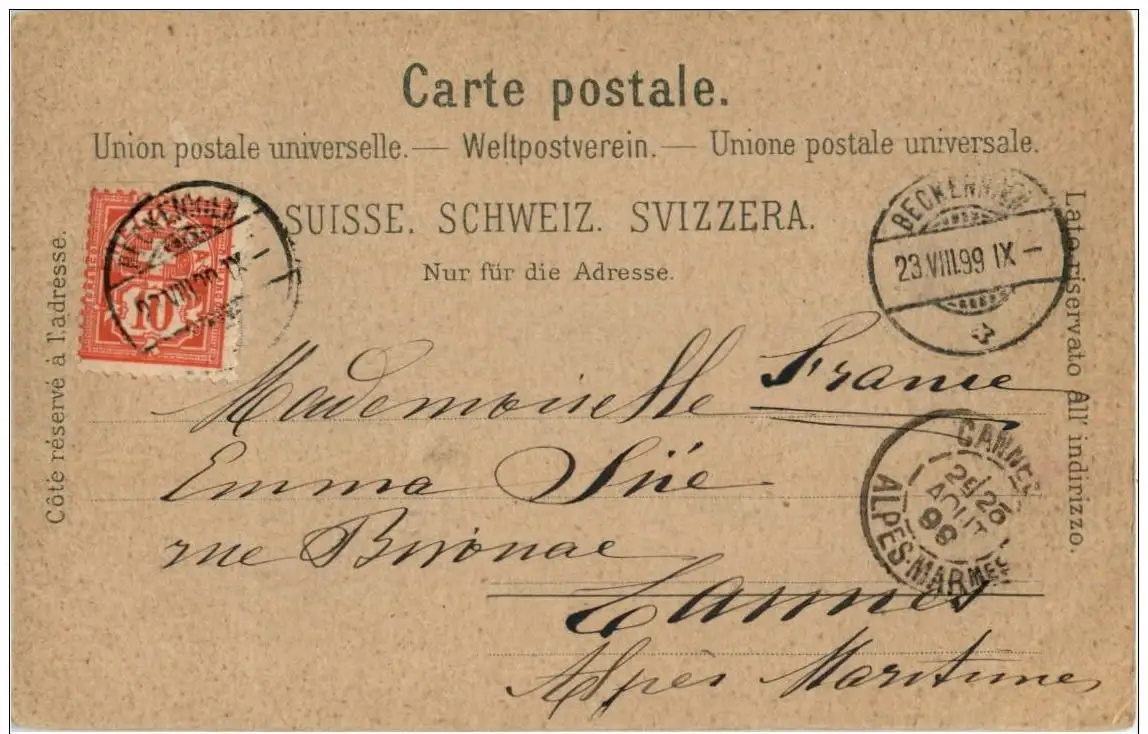 Carte postale.
Union postale universelle. — Weltpostverein. — Unione postale universale.
SUISSE. SCHWEIZ. SVIZZERA.
Nur für die Adresse.
Côté réservé à l'adresse.
Lato riservato all' indirizzo.
10
BECKENRIED
23.VIII.99 IX
CANNES
25 AOUT 99
ALPES-MARMES
Mademoiselle France
Emma Süe
rue Bivonac
Cannes
Alpes Maritimes